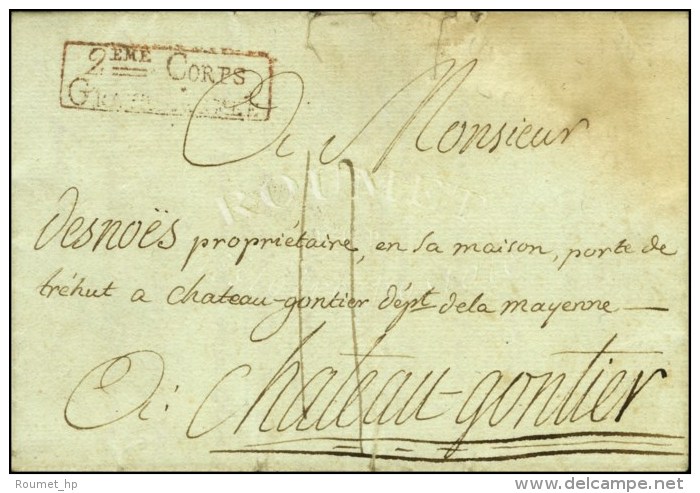 2EME CORPS
A Monsieur
ROUMET
desnoës propriétaire, en sa maison, porte de
tréhut a chateau-gontier dépt dela mayenne —
A : chateau-gontier
Roumet_hp
www.delcampe.net